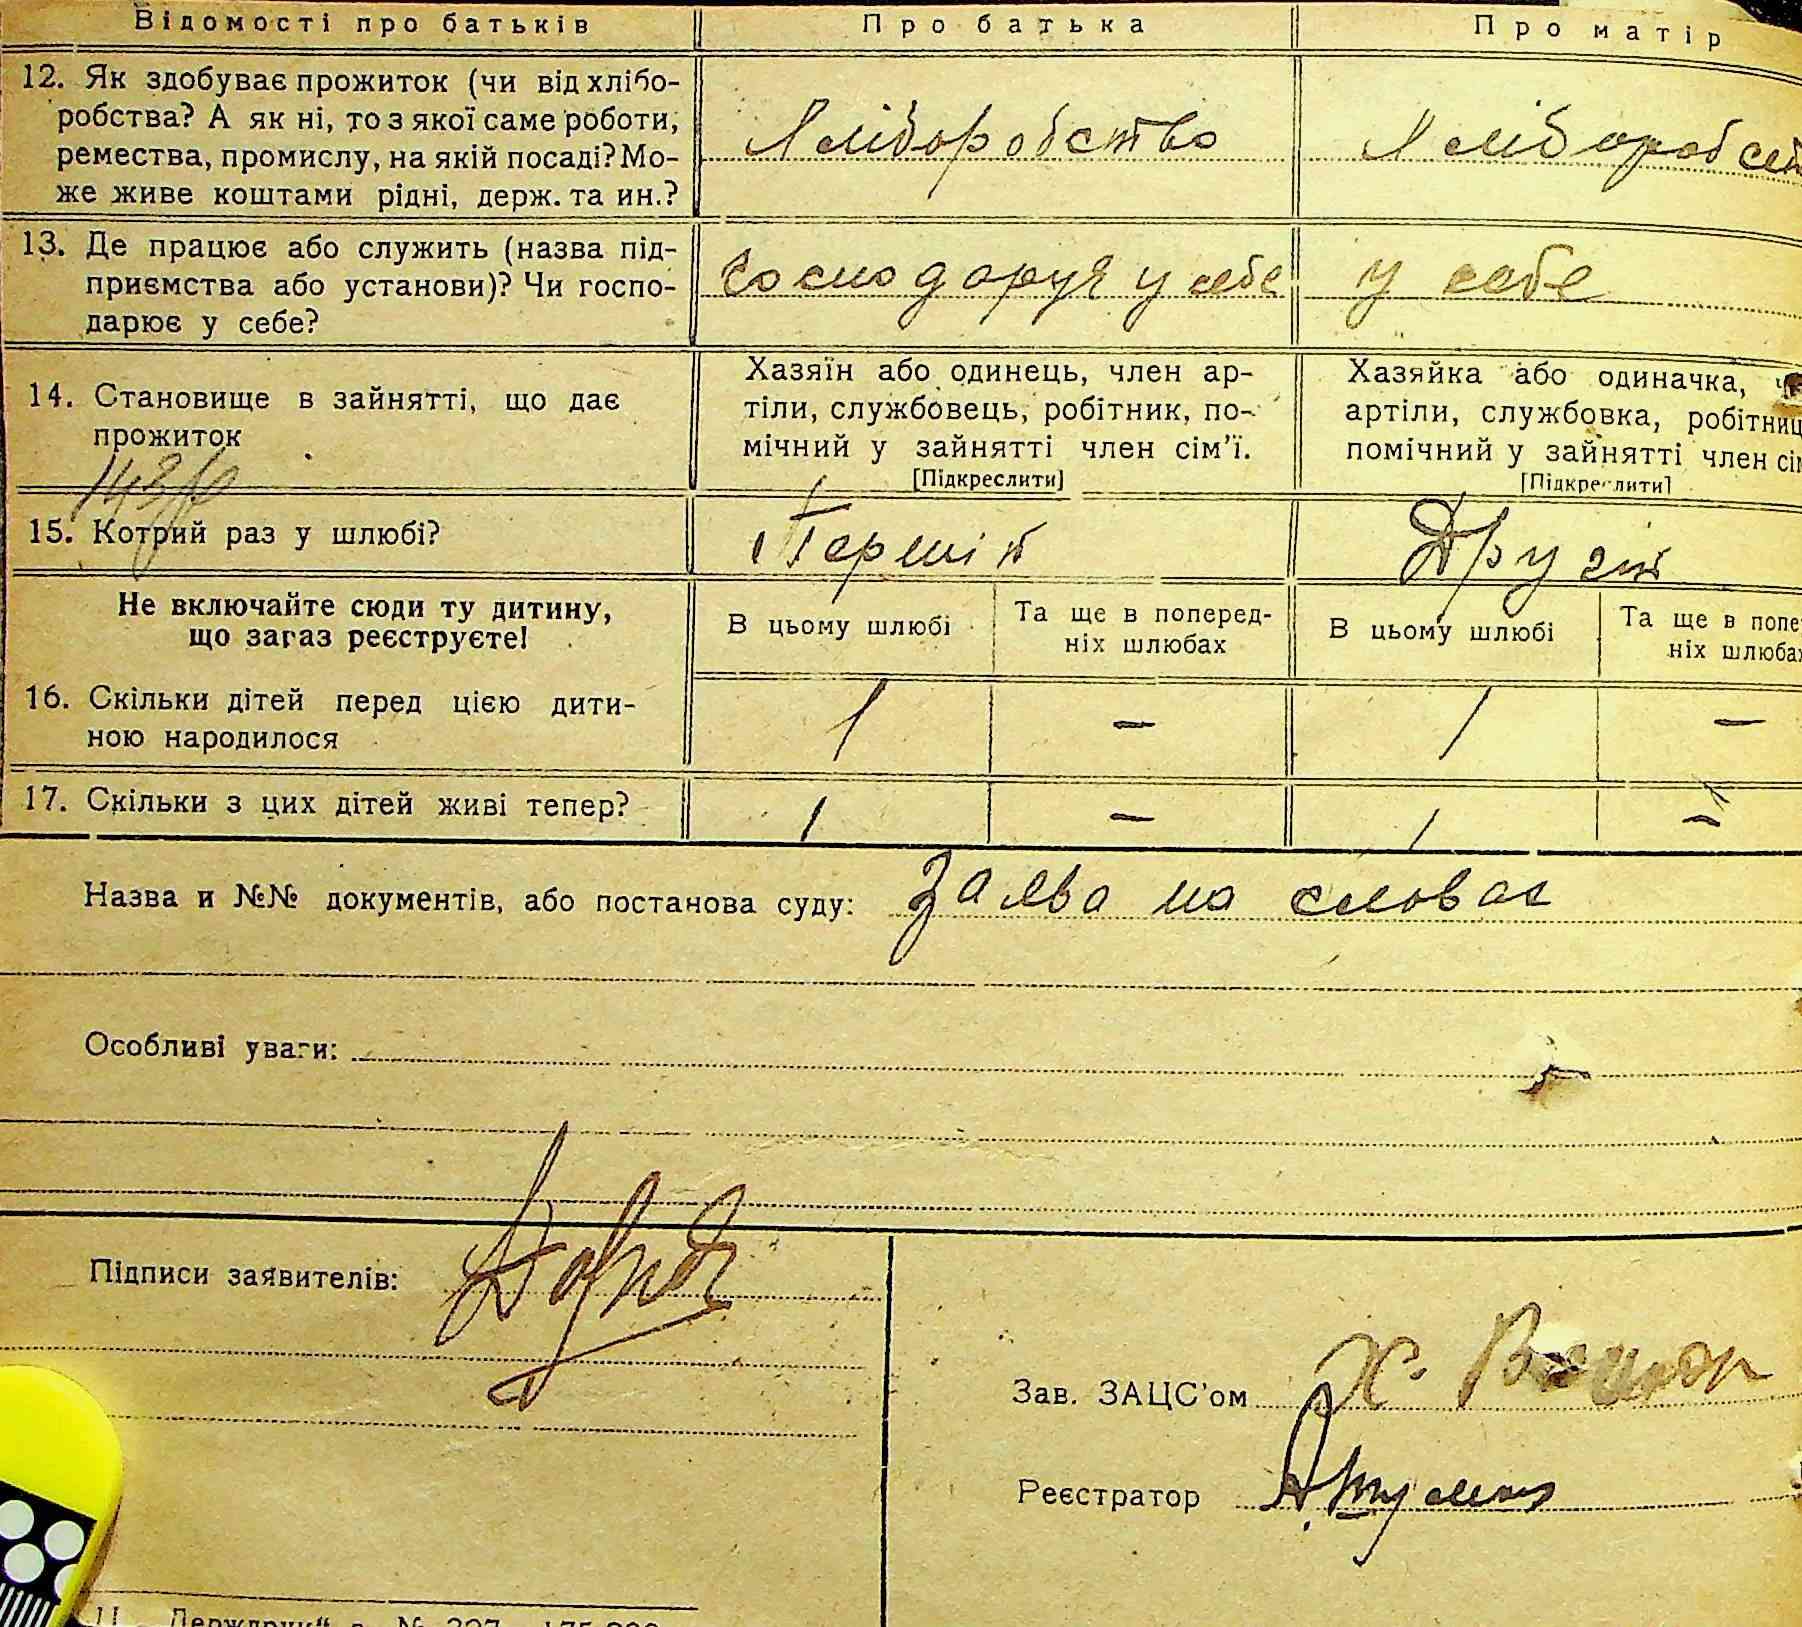 Відомості про батьків Про батька Про матір
12. Як здобуває прожиток (чи від хлібо-
робства? А як ні, то з якої саме роботи,
ремества, промислу, на якій посаді? Мо-
же живе коштами рідні, держ. та ин.?
Хліборобство
Хліборобст
13. Де працює або служить (назва під-
приємства або установи)? Чи госпо-
дарює у себе?
господарує у себе
у себе
14. Становище в зайнятті, що дає
прожиток
Хазяїн або одинець, член ар-
тіли, службовець, робітник, по-
мічний у зайнятті член сім'ї.
[Підкреслити]
Хазяйка або одиначка,
артіли, службовка, робітниц
помічний у зайнятті член сім
[Підкреслити]
15. Котрий раз у шлюбі?
Перший
Другий
Не включайте сюди ту дитину,
що зараз реєструєте!
В цьому шлюбі
Та ще в поперед-
ніх шлюбах
В цьому шлюбі
Та ще в попе
ніх шлюбах
16. Скільки дітей перед цією дити-
ною народилося
1 – 1 –
17. Скільки з цих дітей живі тепер?
1 – 1 –
Назва и №№ документів, або постанова суду: Заява на словах
Особливі уваги:
Підписи заявителів:
Зав. ЗАЦС'ом Х.
Реєстратор
Держдрук" № 327 175.000